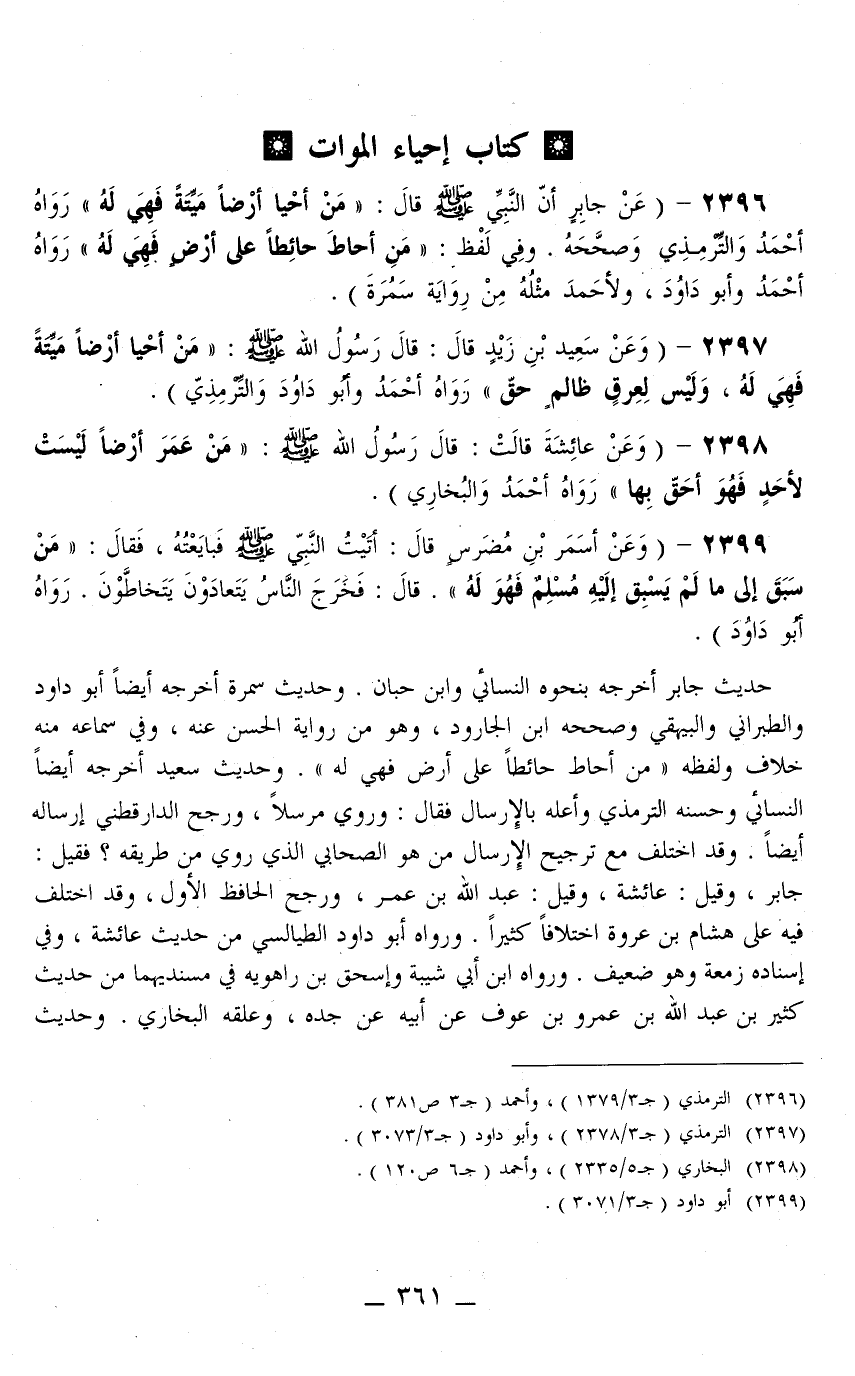 كتاب إحياء الموات
٢٣٩٦ – ( عَنْ جابِرٍ أنّ النَّبِيِّ ﷺ قالَ : « مَنْ أحْيا أرْضاً مَيِّتَةً فَهِيَ لَهُ » رَوَاهُ
أحْمَدُ وَالتِّرْمِـذِي وَصحَّحَهُ . وفِي لَفْظ : « مَنِ أحاطَ حائِطاً على أرْضٍ فَهِيَ لَهُ » رَوَاهُ
أحْمَدُ وأبو دَاوُدَ ، ولأحَمدَ مثْلُهُ مِنْ رِوَايَة سَمُرَةَ ) .
٢٣٩٧ – ( وَعَنْ سَعِيد بْنِ زَيْدٍ قالَ : قالَ رَسُولُ الله ﷺ : « مَنْ أحْيا أرْضاً مَيِّتَةً
فَهِيَ لَهُ ، وَلَيْس لِعِرقٍ ظالمٍ حقّ » رَوَاهُ أحْمَدُ وأبُو دَاوُدَ وَالتِّرْمِذِيّ ) .
٢٣٩٨ – ( وَعَنْ عائِشَةَ قالَتْ : قالَ رَسُولُ الله ﷺ : « مَنْ عَمَرَ أرْضاً لَيْسَتْ
لأحَدٍ فَهُوَ أحَقّ بِها » رَوَاهُ أحْمَدُ وَالبُخارِي ) .
٢٣٩٩ – ( وَعَنْ أسْمَر بْنِ مُضَرَسٍ قالَ : أتَيْتُ النَّبِيّ ﷺ فَبايَعْتُهُ ، فَقالَ : « مَنْ
سَبَقَ إلى ما لَمْ يَسْبِق إلَيْهِ مُسْلِمٌ فَهُوَ لَهُ » . قالَ : فَخَرَجَ النَّاسُ يَتَعادَوْنَ يَتَخاطَّوْنَ . رَوَاهُ
أبُو دَاوُدَ ) .
حديث جابر أخرجه بنحوه النسائي وابن حبان . وحديث سمرة أخرجه أيضاً أبو داود
والطبراني والبيهقي وصححه ابن الجارود ، وهو من رواية الحسن عنه ، وفي سماعه منه
خلاف ولفظه « من أحاط حائطاً على أرض فهي له » . وحديث سعيد أخرجه أيضاً
النسائي وحسنه الترمذي وأعله بالإرسال فقال : وروي مرسلاً ، ورجح الدارقطني إرساله
أيضاً . وقد اختلف مع ترجيح الإرسال من هو الصحابي الذي روي من طريقه ؟ فقيل :
جابر ، وقيل : عائشة ، وقيل : عبد الله بن عمـر ، ورجح الحافظ الأول ، وقد اختلف
فيه على هشام بن عروة اختلافاً كثيراً . ورواه أبو داود الطيالسي من حديث عائشة ، وفي
إسناده زمعة وهو ضعيف . ورواه ابن أبي شيبة وإسحق بن راهويه في مسنديهما من حديث
كثير بن عبد الله بن عمرو بن عوف عن أبيه عن جده ، وعلقه البخاري . وحديث
(٢٣٩٦) الترمذي ( جـ٣/١٣٧٩ ) ، وأحمد ( جـ٣ ص٣٨١ ) .
(٢٣٩٧) الترمذي ( جـ٣/٢٣٧٨ ) ، وأبو داود ( جـ٣/٣٠٧٣ ) .
(٢٣٩٨) البخاري ( جـ٥/٢٣٣٥ ) ، وأحمد ( جـ٦ ص١٢٠ ) .
(٢٣٩٩) أبو داود ( جـ٣/٣٠٧١ ) .
– ٣٦١ –